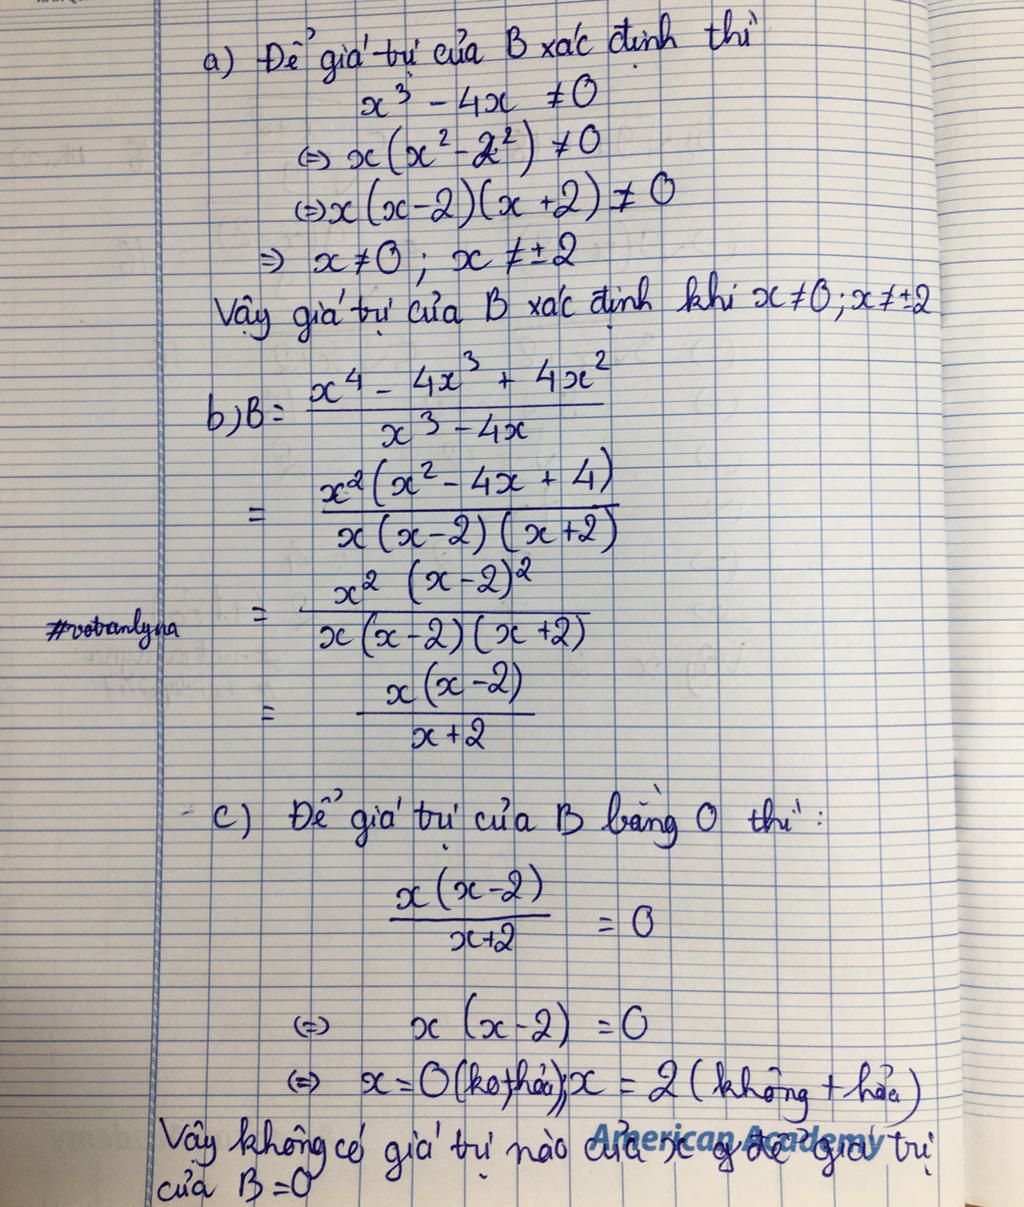 a) Để giá trị của B xác định thì
x³ - 4x ≠ 0
⇔ x(x² - 2²) ≠ 0
⇔ x(x-2)(x+2) ≠ 0
⇒ x ≠ 0 ; x ≠ ±2
Vậy giá trị của B xác định khi x ≠ 0 ; x ≠ ±2
b) B = (x⁴ - 4x³ + 4x²) / (x³ - 4x)
= x²(x² - 4x + 4) / x(x-2)(x+2)
= x² (x-2)² / x(x-2)(x+2)
#votranlyna
= x(x-2) / x+2
c) Để giá trị của B bằng 0 thì :
x(x-2) / x+2 = 0
⇔ x(x-2) = 0
⇔ x = 0 (ko + hỏa); x = 2 (không + hỏa)
Vậy không có giá trị nào của x để giá trị
American Academy
của B = 0